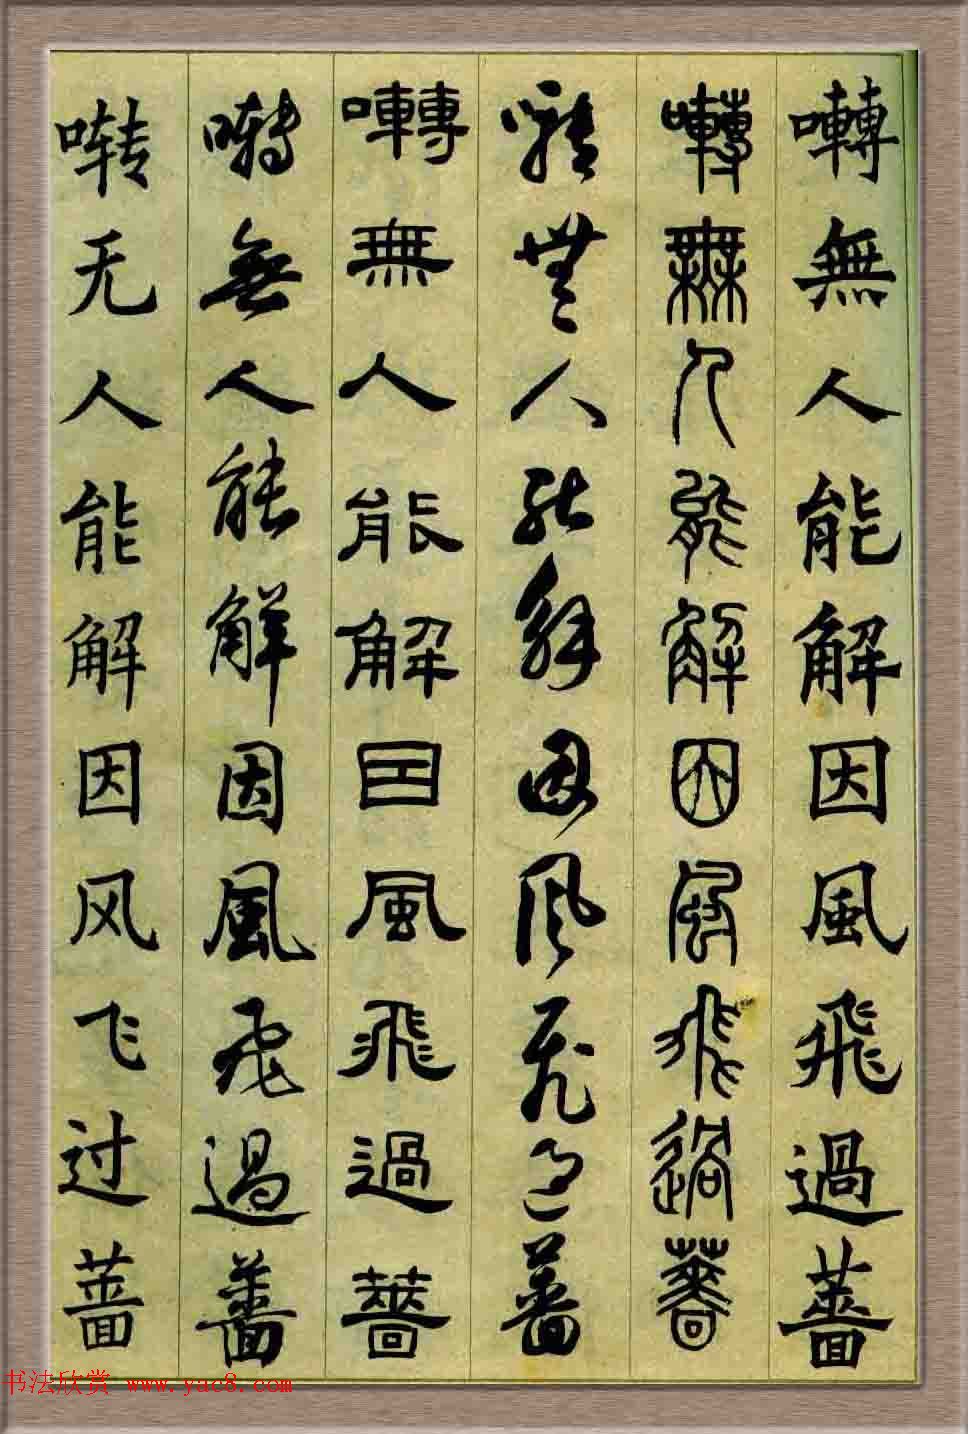 囀無人能解因風飛過薔
囀無人能解因風飛過薔
囀無人能解因風飛過薔
囀無人能解因風飛過薔
囀無人能解因風飛過薔
啭无人能解因风飞过蔷
书法欣赏 www.yac8.com